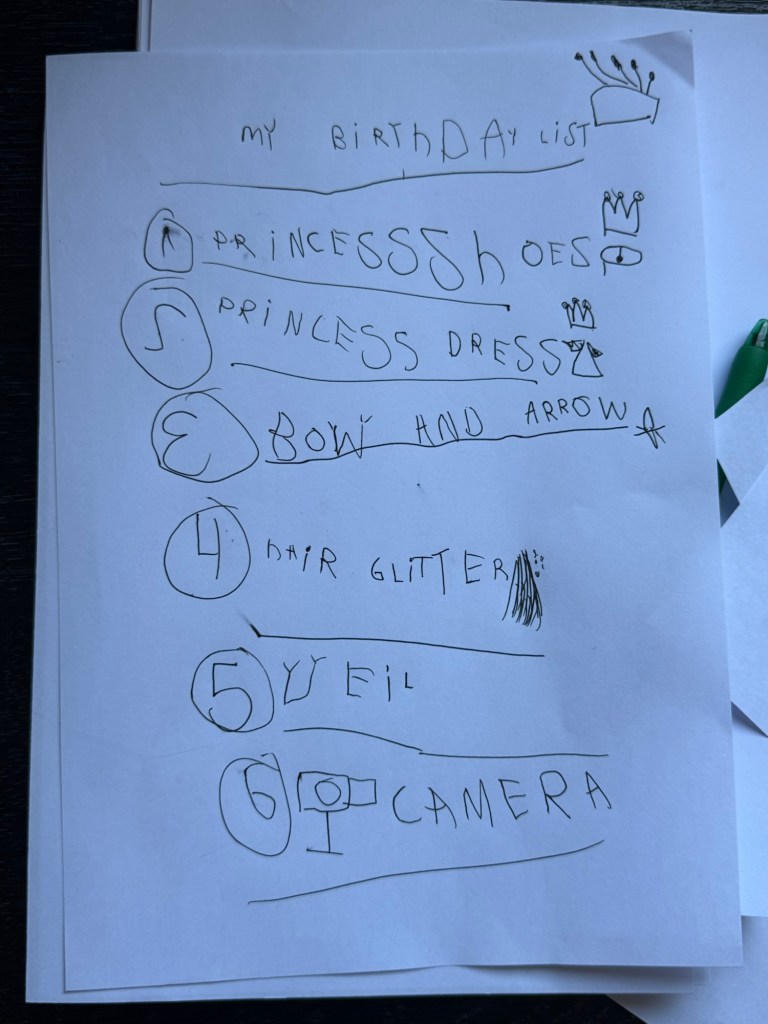 MY BiRThDAY LiST
1 PRiNCESSSh OES
2 PRiNCESS DRESS
3 BOW AND ARROW
4 hAiR GLiTTER
5 VEiL
6 CAMERA